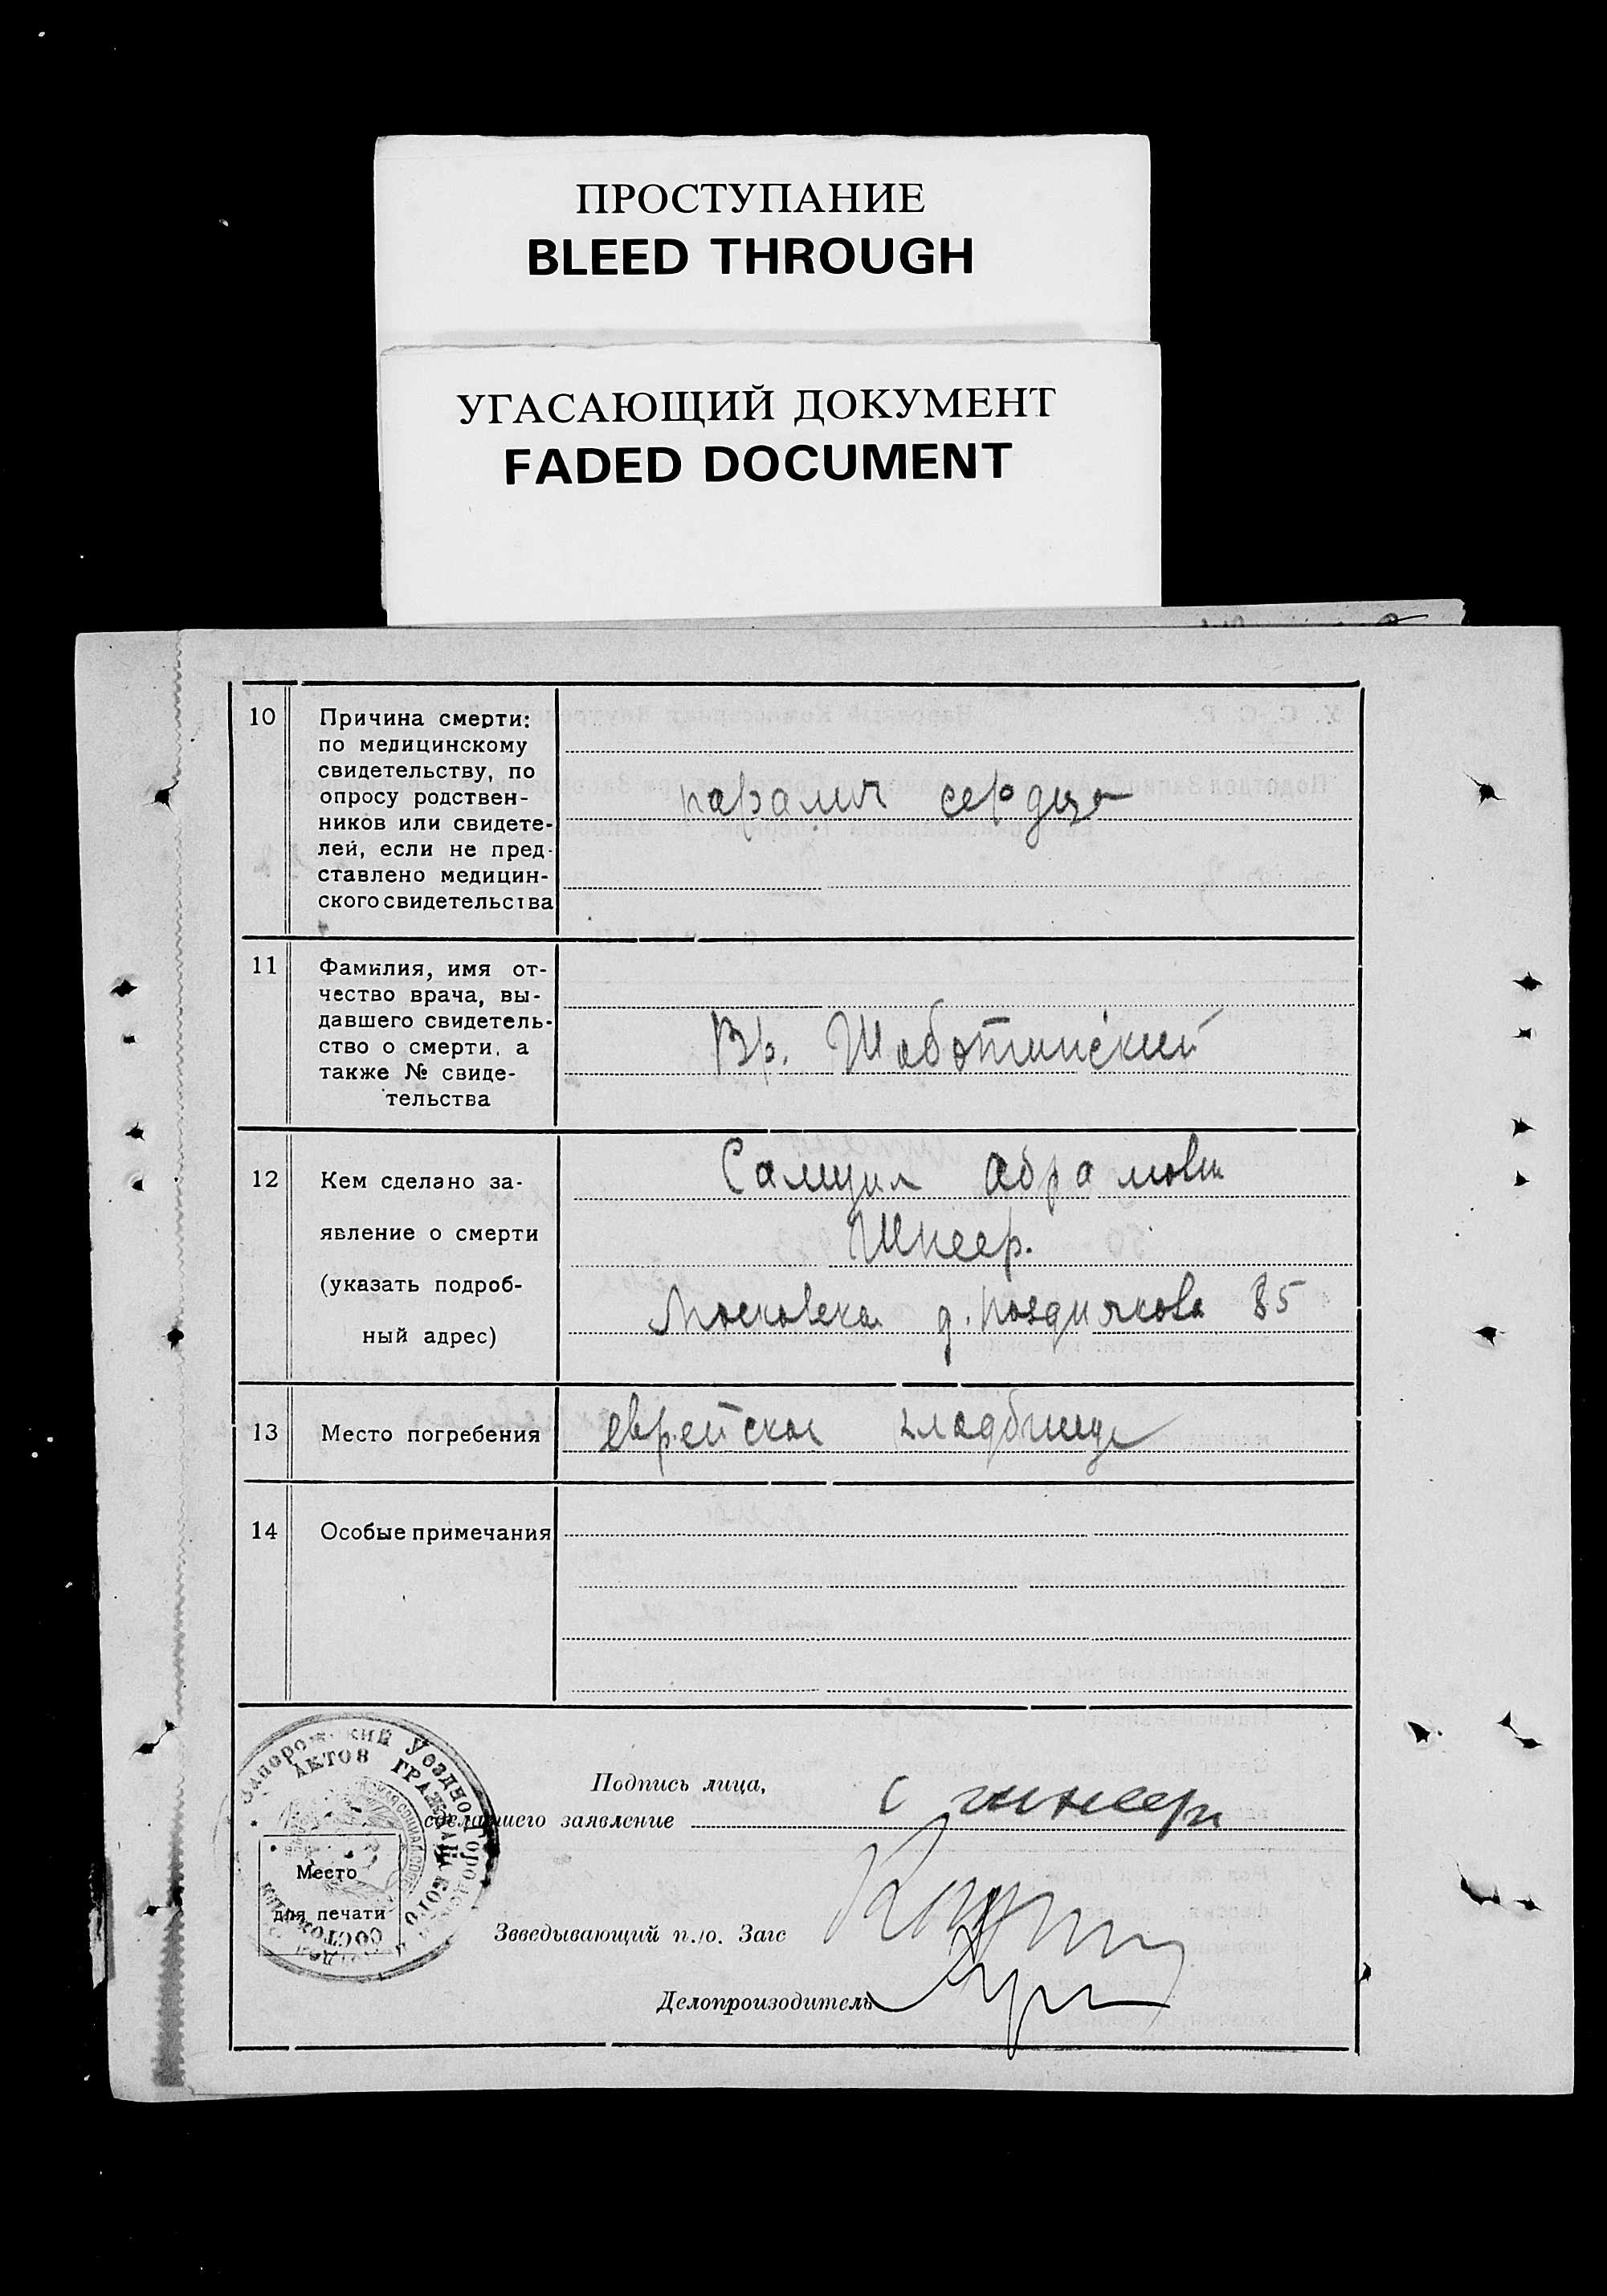 ПРОСТУПАНИЕ
BLEED THROUGH
УГАСАЮЩИЙ ДОКУМЕНТ
FADED DOCUMENT
10
Причина смерти:
по медицинскому
свидетельству, по
опросу родствен-
ников или свидете-
лей, если не пред-
ставлено медицин-
ского свидетельства
паралич сердца
11
Фамилия, имя от-
чество врача, вы-
давшего свидетель-
ство о смерти, а
также № свиде-
тельства
Вр. Шаботинский
12
Кем сделано за-
явление о смерти
(указать подроб-
ный адрес)
Самуил Абрамови
Шнеер.
Московска д. Позднякова 85
13
Место погребения
еврейское кладбище
14
Особые примечания
Запорожский Уездно Городской
АКТОВ ГРАЖДАНСКОГО СОСТОЯНИЯ
Место
для печати
Подпись лица,
сделавшего заявление
С шнеер
Зведывающий п./о. Загс
Делопроизводитель